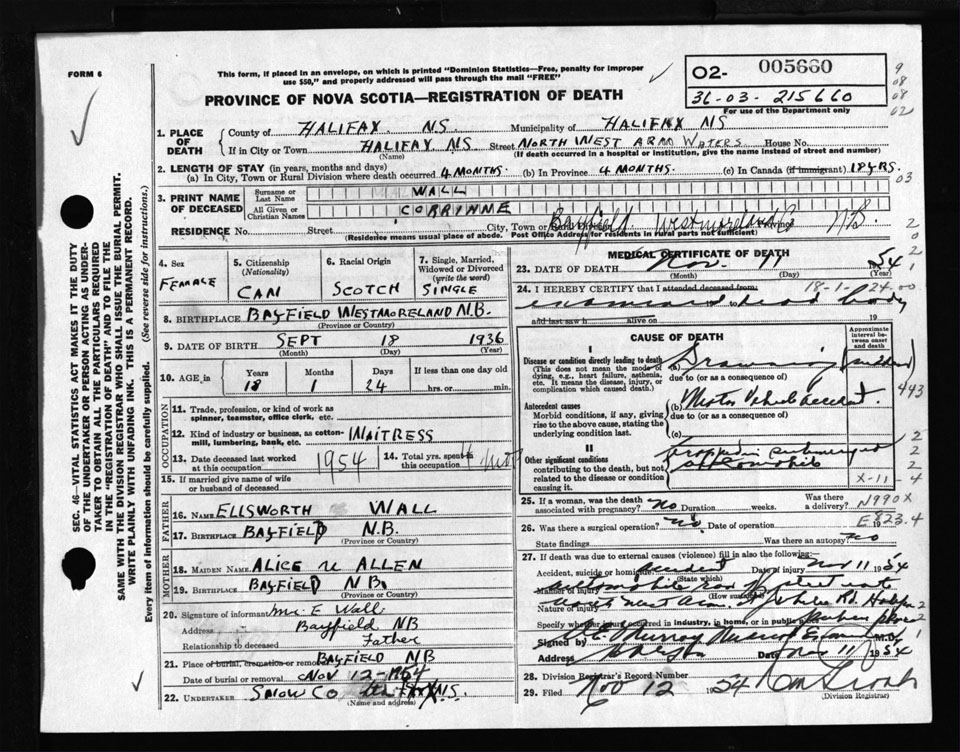 FORM 6
This form, if placed in an envelope, on which is printed "Dominion Statistics—Free, penalty for improper
use $50," and properly addressed will pass through the mail "FREE"
PROVINCE OF NOVA SCOTIA—REGISTRATION OF DEATH
02- 005660
31-03- 215660
For use of the Department only
9
08
08
02
1. PLACE OF DEATH
County of HALIFAX. N.S. Municipality of HALIFAX NS
If in City or Town HALIFAX NS Street NORTH WEST ARM WATERS House No.
(Name) (If death occurred in a hospital or institution, give the name instead of street and number)
2. LENGTH OF STAY (in years, months and days)
(a) In City, Town or Rural Division where death occurred 4 MONTHS. (b) In Province 4 MONTHS. (c) In Canada (if immigrant) 18 YRS.
03
3. PRINT NAME OF DECEASED
Surname or Last Name WALL
All Given or Christian Names CORRYNNE
RESIDENCE No. Street City, Town or Bayfield Westmoreland N.B.
(Residence means usual place of abode. Post Office Address for residents in rural parts not sufficient)
4. Sex
FEMALE
5. Citizenship
(Nationality)
CAN
6. Racial Origin
SCOTCH
7. Single, Married,
Widowed or Divorced
(write the word)
SINGLE
8. BIRTHPLACE BAYFIELD WESTMORELAND N.B.
(Province or Country)
9. DATE OF BIRTH SEPT 18 1936
(Month) (Day) (Year)
10. AGE in
Years Months Days If less than one day old
18 1 24 hrs. or min.
OCCUPATION
11. Trade, profession, or kind of work as
spinner, teamster, office clerk, etc.
12. Kind of industry or business, as cotton-
mill, lumbering, bank, etc.
WAITRESS
13. Date deceased last worked
at this occupation 1954
14. Total yrs. spent in
this occupation
15. If married give name of wife
or husband of deceased
FATHER
16. NAME ELLSWORTH WALL
17. BIRTHPLACE BAYFIELD N.B.
(Province or Country)
MOTHER
18. MAIDEN NAME ALICE ALLEN
19. BIRTHPLACE BAYFIELD N.B.
(Province or Country)
20. Signature of informant Mr. E Wall
Address Bayfield NB
Relationship to deceased Father
21. Place of burial, cremation or removal BAYFIELD N.B
Date of burial or removal NOV 12-1954
22. UNDERTAKER SNOW CO HALIFAX N.S.
(Name and address)
MEDICAL CERTIFICATE OF DEATH
23. DATE OF DEATH Nov. 11 1954
(Month) (Day) (Year)
24. I HEREBY CERTIFY that I attended deceased from: 18-1-24-00
examined to dead body
and last saw h alive on 19
CAUSE OF DEATH
Approximate
interval
between onset
and death
I
Disease or condition directly leading to death
(This does not mean the mode of
dying, e.g., heart failure, asthenia,
etc. It means the disease, injury, or
complication which caused death.)
(a) Drowning sudden
due to (or as a consequence of)
Antecedent causes
Morbid conditions, if any, giving
rise to the above cause, stating the
underlying condition last.
(b) Motor Vehicle accident.
due to (or as a consequence of)
(c)
443
II
Other significant conditions
contributing to the death, but not
related to the disease or condition
causing it.
submerged
automobile
X-11-4
25. If a woman, was the death
associated with pregnancy? No Duration weeks.
Was there
a delivery? N990X
26. Was there a surgical operation? No Date of operation E823.4
State findings Was there an autopsy? No
27. If death was due to external causes (violence) fill in also the following:
Accident, suicide or homicide? Accident Date of injury Nov 11 1954
(State which)
automobile ran street into
(How sustained)
North West Arm, Rd. Halifax
Nature of injury
Specify whether injury occurred in industry, in home, or in public place
Signed by Murray Medical Examiner M.D.
Address Halifax Date Nov 11 1954
28. Division Registrar's Record Number
29. Filed Nov 12 1954
(Division Registrar)
SEC. 46—VITAL STATISTICS ACT MAKES IT THE DUTY
OF THE UNDERTAKER OR PERSON ACTING AS UNDER-
TAKER TO OBTAIN ALL THE PARTICULARS REQUIRED
IN THE "REGISTRATION OF DEATH" AND TO FILE THE
SAME WITH THE DIVISION REGISTRAR WHO SHALL ISSUE THE BURIAL PERMIT.
WRITE PLAINLY WITH UNFADING INK. THIS IS A PERMANENT RECORD.
Every item of Information should be carefully supplied. (See reverse side for instructions.)